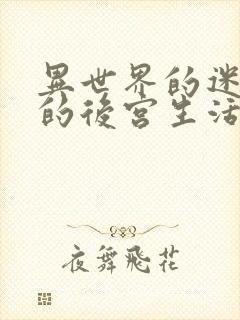 異世界的迷
的後宮生活
夜舞飛花